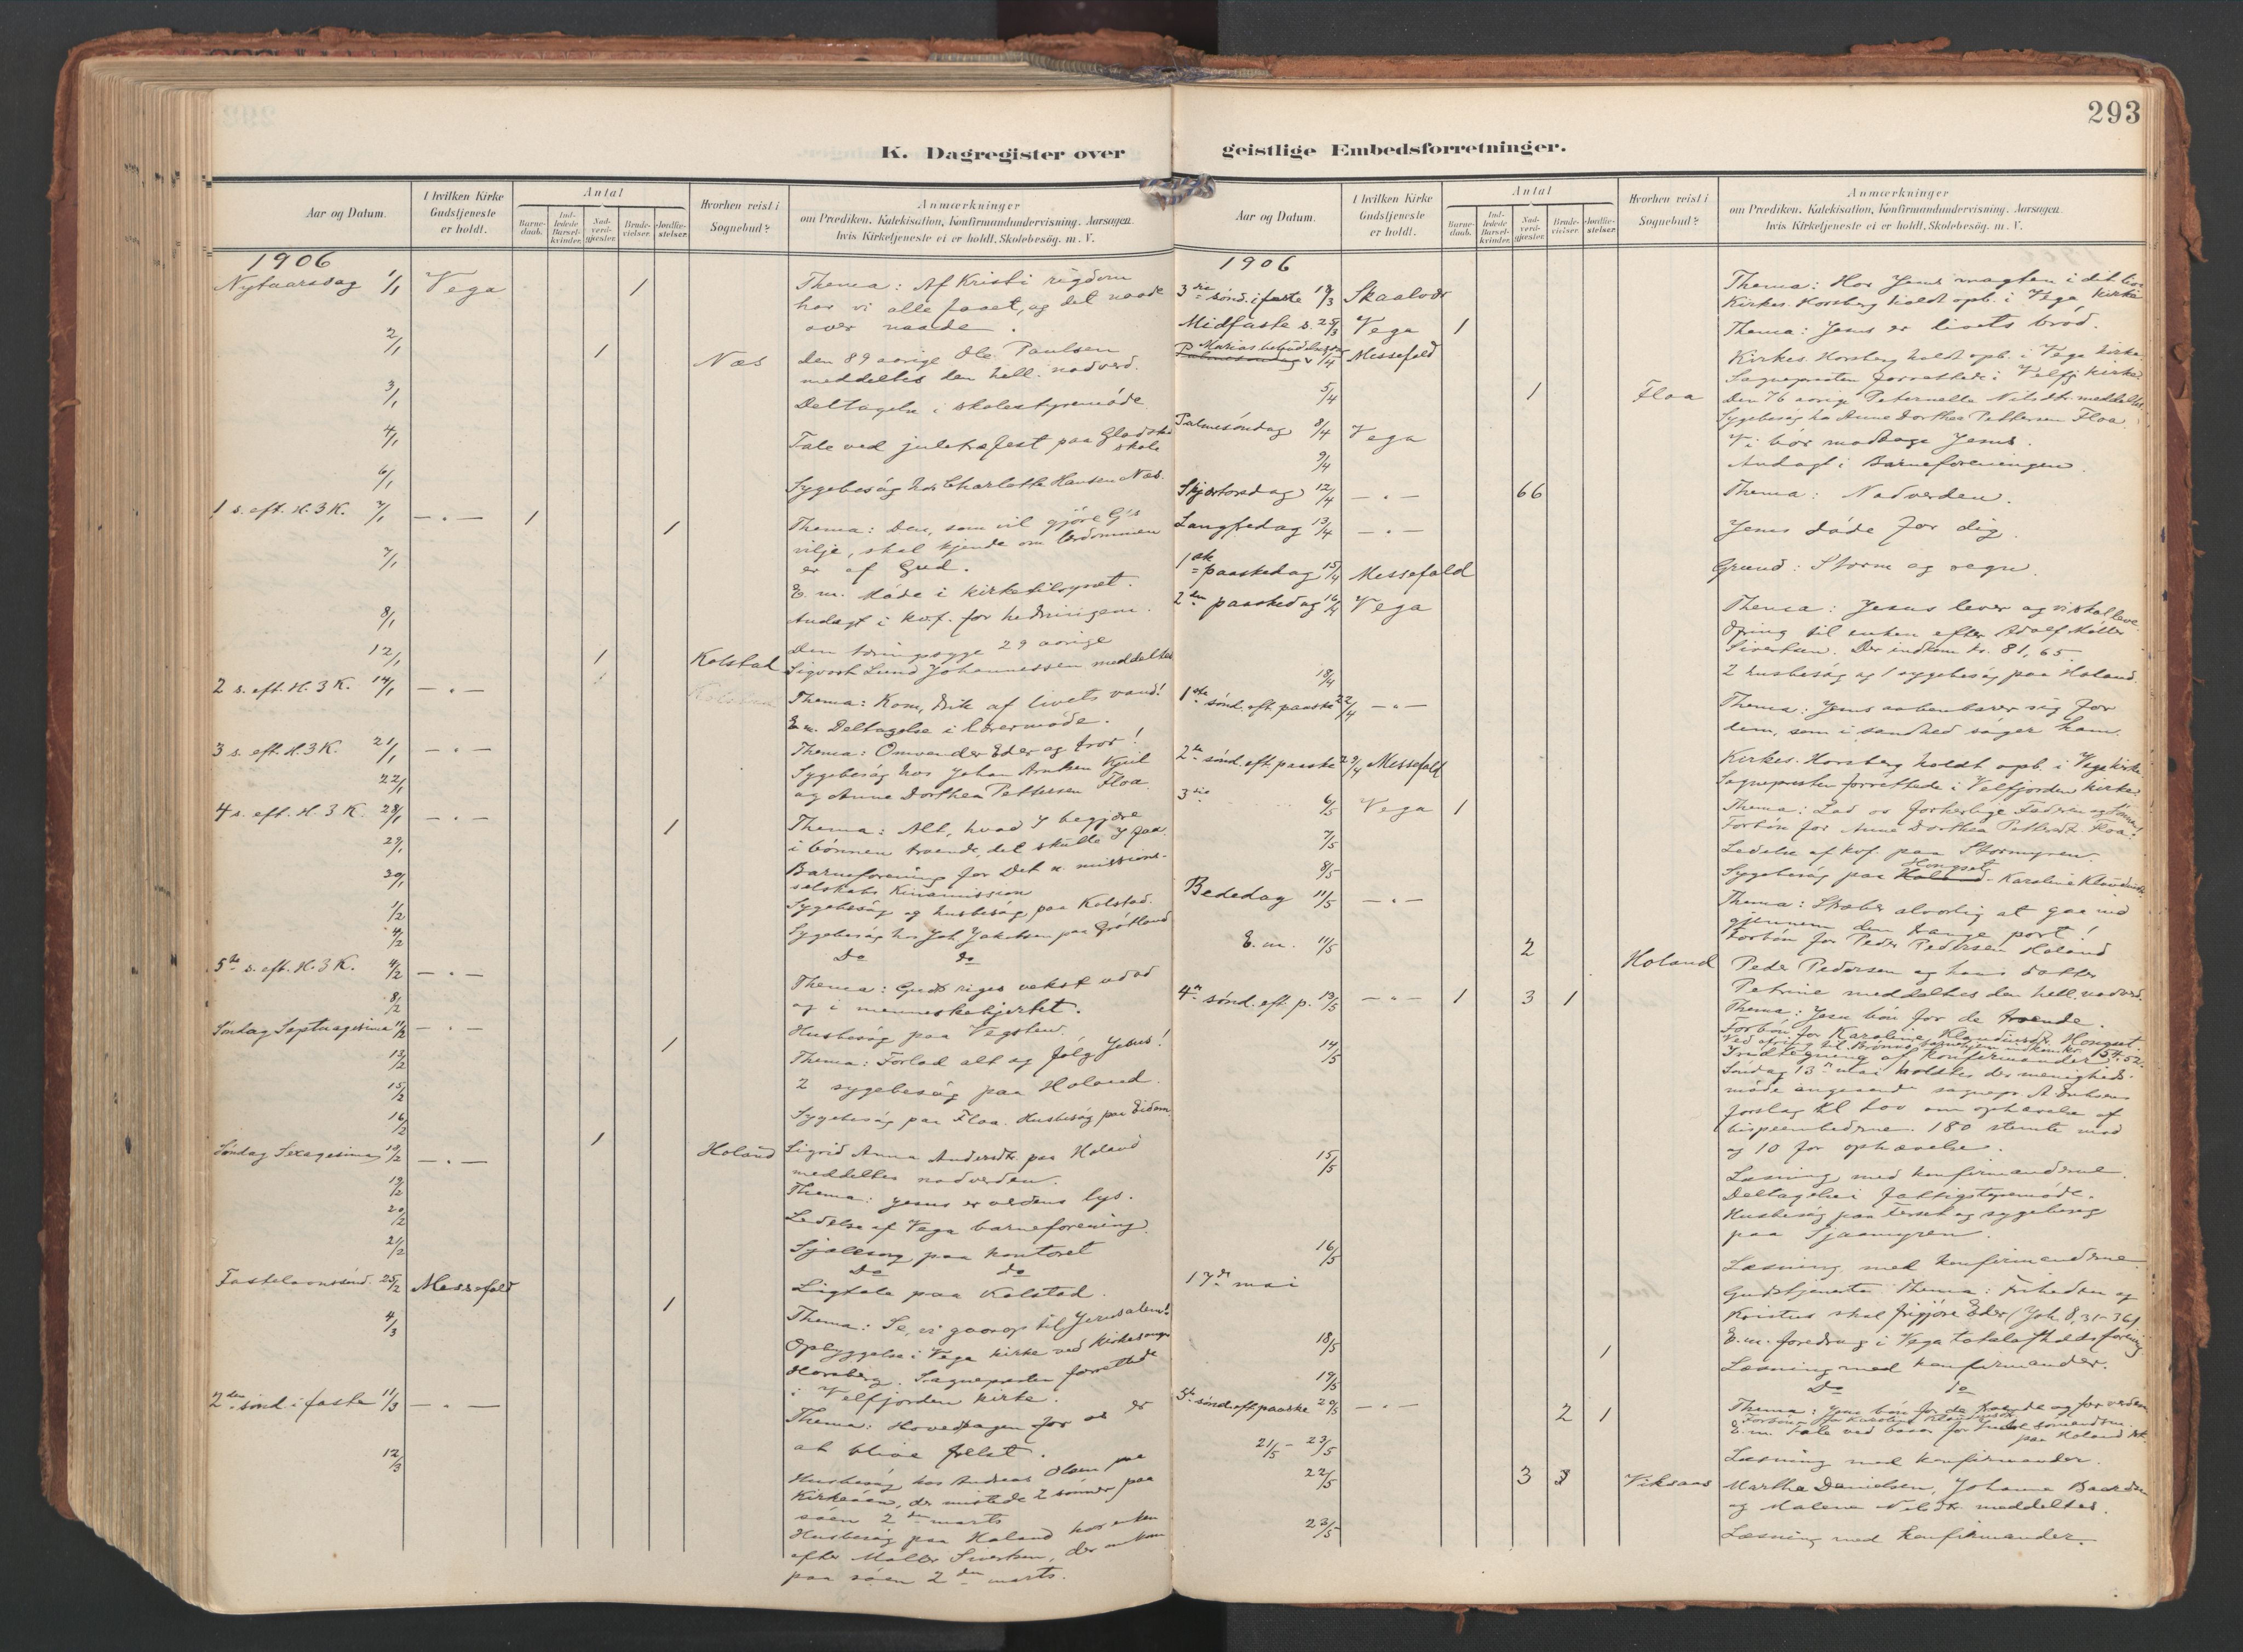 293
K. Dagregister over geistlige Embedsforretninger.
Aar og Datum.
I hvilken Kirke Gudstjeneste er holdt.
Antal
Barne-daab.
Ind-ledede Barsel-kvinder.
Nad-verd-gjester.
Brude-vielser.
Jordfæ-stelser.
Hvorhen reist i Sognebud?
Anmærkninger
om Prædiken, Katekisation, Konfirmandundervisning. Aarsagen,
hvis Kirketjeneste ei er holdt, Skolebesög, m. V.
1906
Nytaarsdag 1/1 Vega 1 Thema: Af Kristi rigdom
har vi alle faaet, og det naade
over naade.
2/1 1 Næs den 89 aarige Ole Paulsen
meddeltes den hell. nadverd.
3/1 Deltagelse i skolestyremøde
4/1 Tale ved juletræfest paa
skole
6/1 Sygebesög hos Charlotte Hansen Næs.
1 s. eft. H. 3 K. 7/1 — " — 1 1 Thema: Den, som vil gjöre G's
vilje, skal kjende om lærdommen
er af Gud.
7/1 E. m. Möde i kirketilsynet.
8/1 Andagt i kvf. for hedningem.
12/1 1 Kolstad Den tæringssyge 29 aarige
Sigvart Lund Johannessen meddeltes
2 s. eft. H. 3 K. 14/1 — " — Thema: Kom, drik af livets vand!
E. m. Deltagelse i lærermöde.
3 s. eft. H. 3 K. 21/1 — " — Thema: Omvender Eder og tror!
22/1 Sygebesög hos Johan
og Anne Dorthea Pettersen Floa.
4 s. eft. H. 3 K. 28/1 — " — 1 Thema: Alt, hvad I begjære
i bönnen troende, det skulle I faa.
29/1 Barneforening for Det n. missions-
selskabs Kinamission
30/1 Sygebesög og husbesög paa Kolstad.
1/2 Sygebesög hos Joh. Jakobsen paa
4/2 Do do
5te s. eft. H. 3 K. 4/2 — " — Thema: Guds riges vekst udad
og i menneskehjertet.
8/2 Husbesög paa Vegstein.
Söndag Septuagesima 11/2 — " — 1 Thema: Forlad alt og fölg Jesus!
13/2 2 sygebesög paa Holand.
15/2 Sygebesög paa Floa. Husbesög paa Eidem.
16/2 1 Holand Sigrid Anna Andersdtr. paa Holand
meddeltes nadverden.
Söndag Sexagesima 18/2 — " — Thema: Jesus er verdens lys.
19/2 Ledelse af Vega barneforening
20/2 Sjælesorg paa kontoret
21/2 Do do
Ligtale paa Kolstad.
Fastelavnssönd. 25/2 Messefold 1 Thema: Se, vi gaar op til Jerusalem!
4/3 Opbyggelse i Vega kirke ved Kirkesanger
Horsberg. Sognepresten forrettede
i Velfjorden kirke.
2den sönd. i faste 11/3 — " — Thema: Hovedsagen for os er
at blive frelst.
12/3 Husbesög hos Andreas Olsen paa
Kirkeöen, der mistede 2 sönner paa
söen 2den marts
Husbesög paa Holand hos enken
efter Möller Sivertsen, der omkom
paa söen 2den marts.
1906
3die sönd. i faste 18/3 Skaalvær Thema: Har Jesus magten i dit liv?
Kirkes. Horsberg holdt opb. i Vega kirke
Midfaste s. 25/3 Vega 1 Thema: Jesus er livets bröd.
Palmesöndag Marias bebudelsesd. 1/4 Messefold Kirkes. Horsberg holdt opb. i Vega kirke.
Sognepresten forrettede i Velfj. kirke.
5/4 1 Floa Den 76 aarige Peternelle Nilsdtr. meddeltes
Sygebesög hos Anne Dorthea Pettersen Floa.
Palmesöndag 8/4 Vega Vi bör modtage Jesus.
9/4 Andagt i Barneforeningen.
Skjærtorsdag 12/4 — " — 66 Thema: Nadverden.
Langfredag 13/4 — " — Jesus döde for dig.
1ste paaskedag 15/4 Messefold Grund: Storm og regn.
2den paaskedag 16/4 Vega Thema: Jesus lever og vi skal leve.
Ofring til enken efter Adolf Möller
Sivertsen. Der indkom kr. 81,65.
18/4 2 husbesög og 1 sygebesög paa Holand.
1ste sönd. eft. paaske 22/4 — " — Thema: Jesus aabenbarer sig for
dem, som i sandhed söger ham.
2den sönd. eft. paaske 29/4 Messefold Kirkes. Horsberg holdt opb. i Vega kirke.
Sognepresten forrettede i Velfjorden kirke.
3die 6/5 Vega 1 Thema: Lad os forherlige Faderen og Sönnen!
Forbön for Anne Dorthea Pettersdt. Floa.
7/5 Ledelse af kvf. paa Stormyren.
8/5 Sygebesög paa Holand Hongset - Karoline
Bededag 11/5 — " — Thema: Stræber alvorlig at gaa ind
gjennem den trange port!
Forbön for Peder Pedersen Holand
E. m. 11/5 2 Holand Peder Pedersen og hans datter
Petrine meddeltes den hell. nadverd.
4de sönd. eft. p. 13/5 — " — 1 3 1 Thema: Jesu bön for de troende.
Forbön for Karoline Klaudiusdt. Hongset.
Ved ofring til Brönnö barnehjem indkom kr. 154,52.
14/5 Indtegning af konfirmander.
Söndag 13de mai holdtes der menigheds-
möde angaaende sognepr.
forslag til lov om ophævelse af
bispeembederne. 180 stemte mod
og 10 for ophævelse.
15/5 Læsning med konfirmanderne.
Deltagelse i fattigstyremöde.
Husbesög paa og sygebesög
paa
16/5 Læsning med konfirmanderne.
17de mai Gudstjeneste. Thema: Friheden og
Kristus skal frigjöre Eder (Joh. 8, 31-36).
E. m. foredrag i Vega totalafholdsforening
18/5 1 Læsning med konfirmander.
19/5 Do do
5te sönd. eft. paaske 20/5 — " — 2 1 Thema: Jesu bön for de troende og for verden
Forbön for Karoline
E. m. Tale ved basar for paa Holand
21/5 - 23/5 Læsning med konfirmander.
22/5 3 3 Viksaas Martha Danielsen, Johanna
og Malene Nilsdtr. meddeltes.
23/5 Læsning med konfirmander.